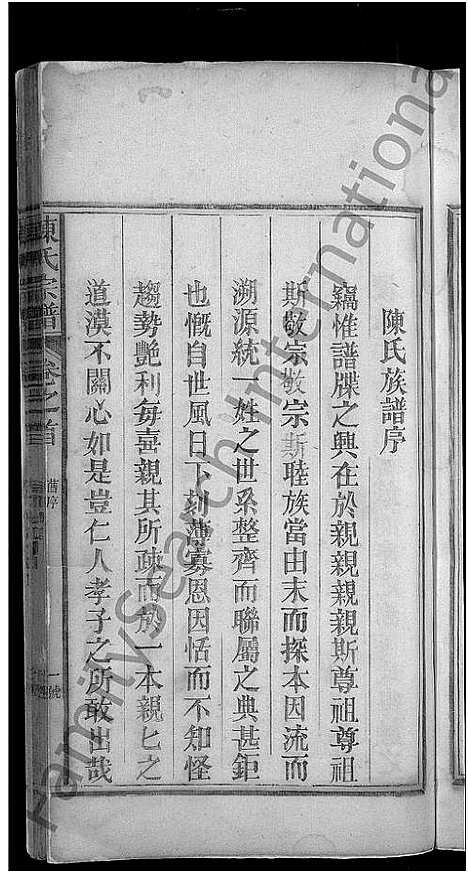 陳氏族譜序
竊惟譜牒之興在於親親親親斯尊祖尊祖
斯敬宗敬宗斯睦族當由末而探本因流而
溯源統一姓之世系整齊而聯屬之典甚鉅
也慨自世風日下刻薄寡恩因恬而不知怪
趨勢艷利每喜親其所疎而於一本親匕之
道漠不關心如是豈仁人孝子之所敢出哉
陳氏宗譜
卷之首
舊序
一號
FamilySearch International